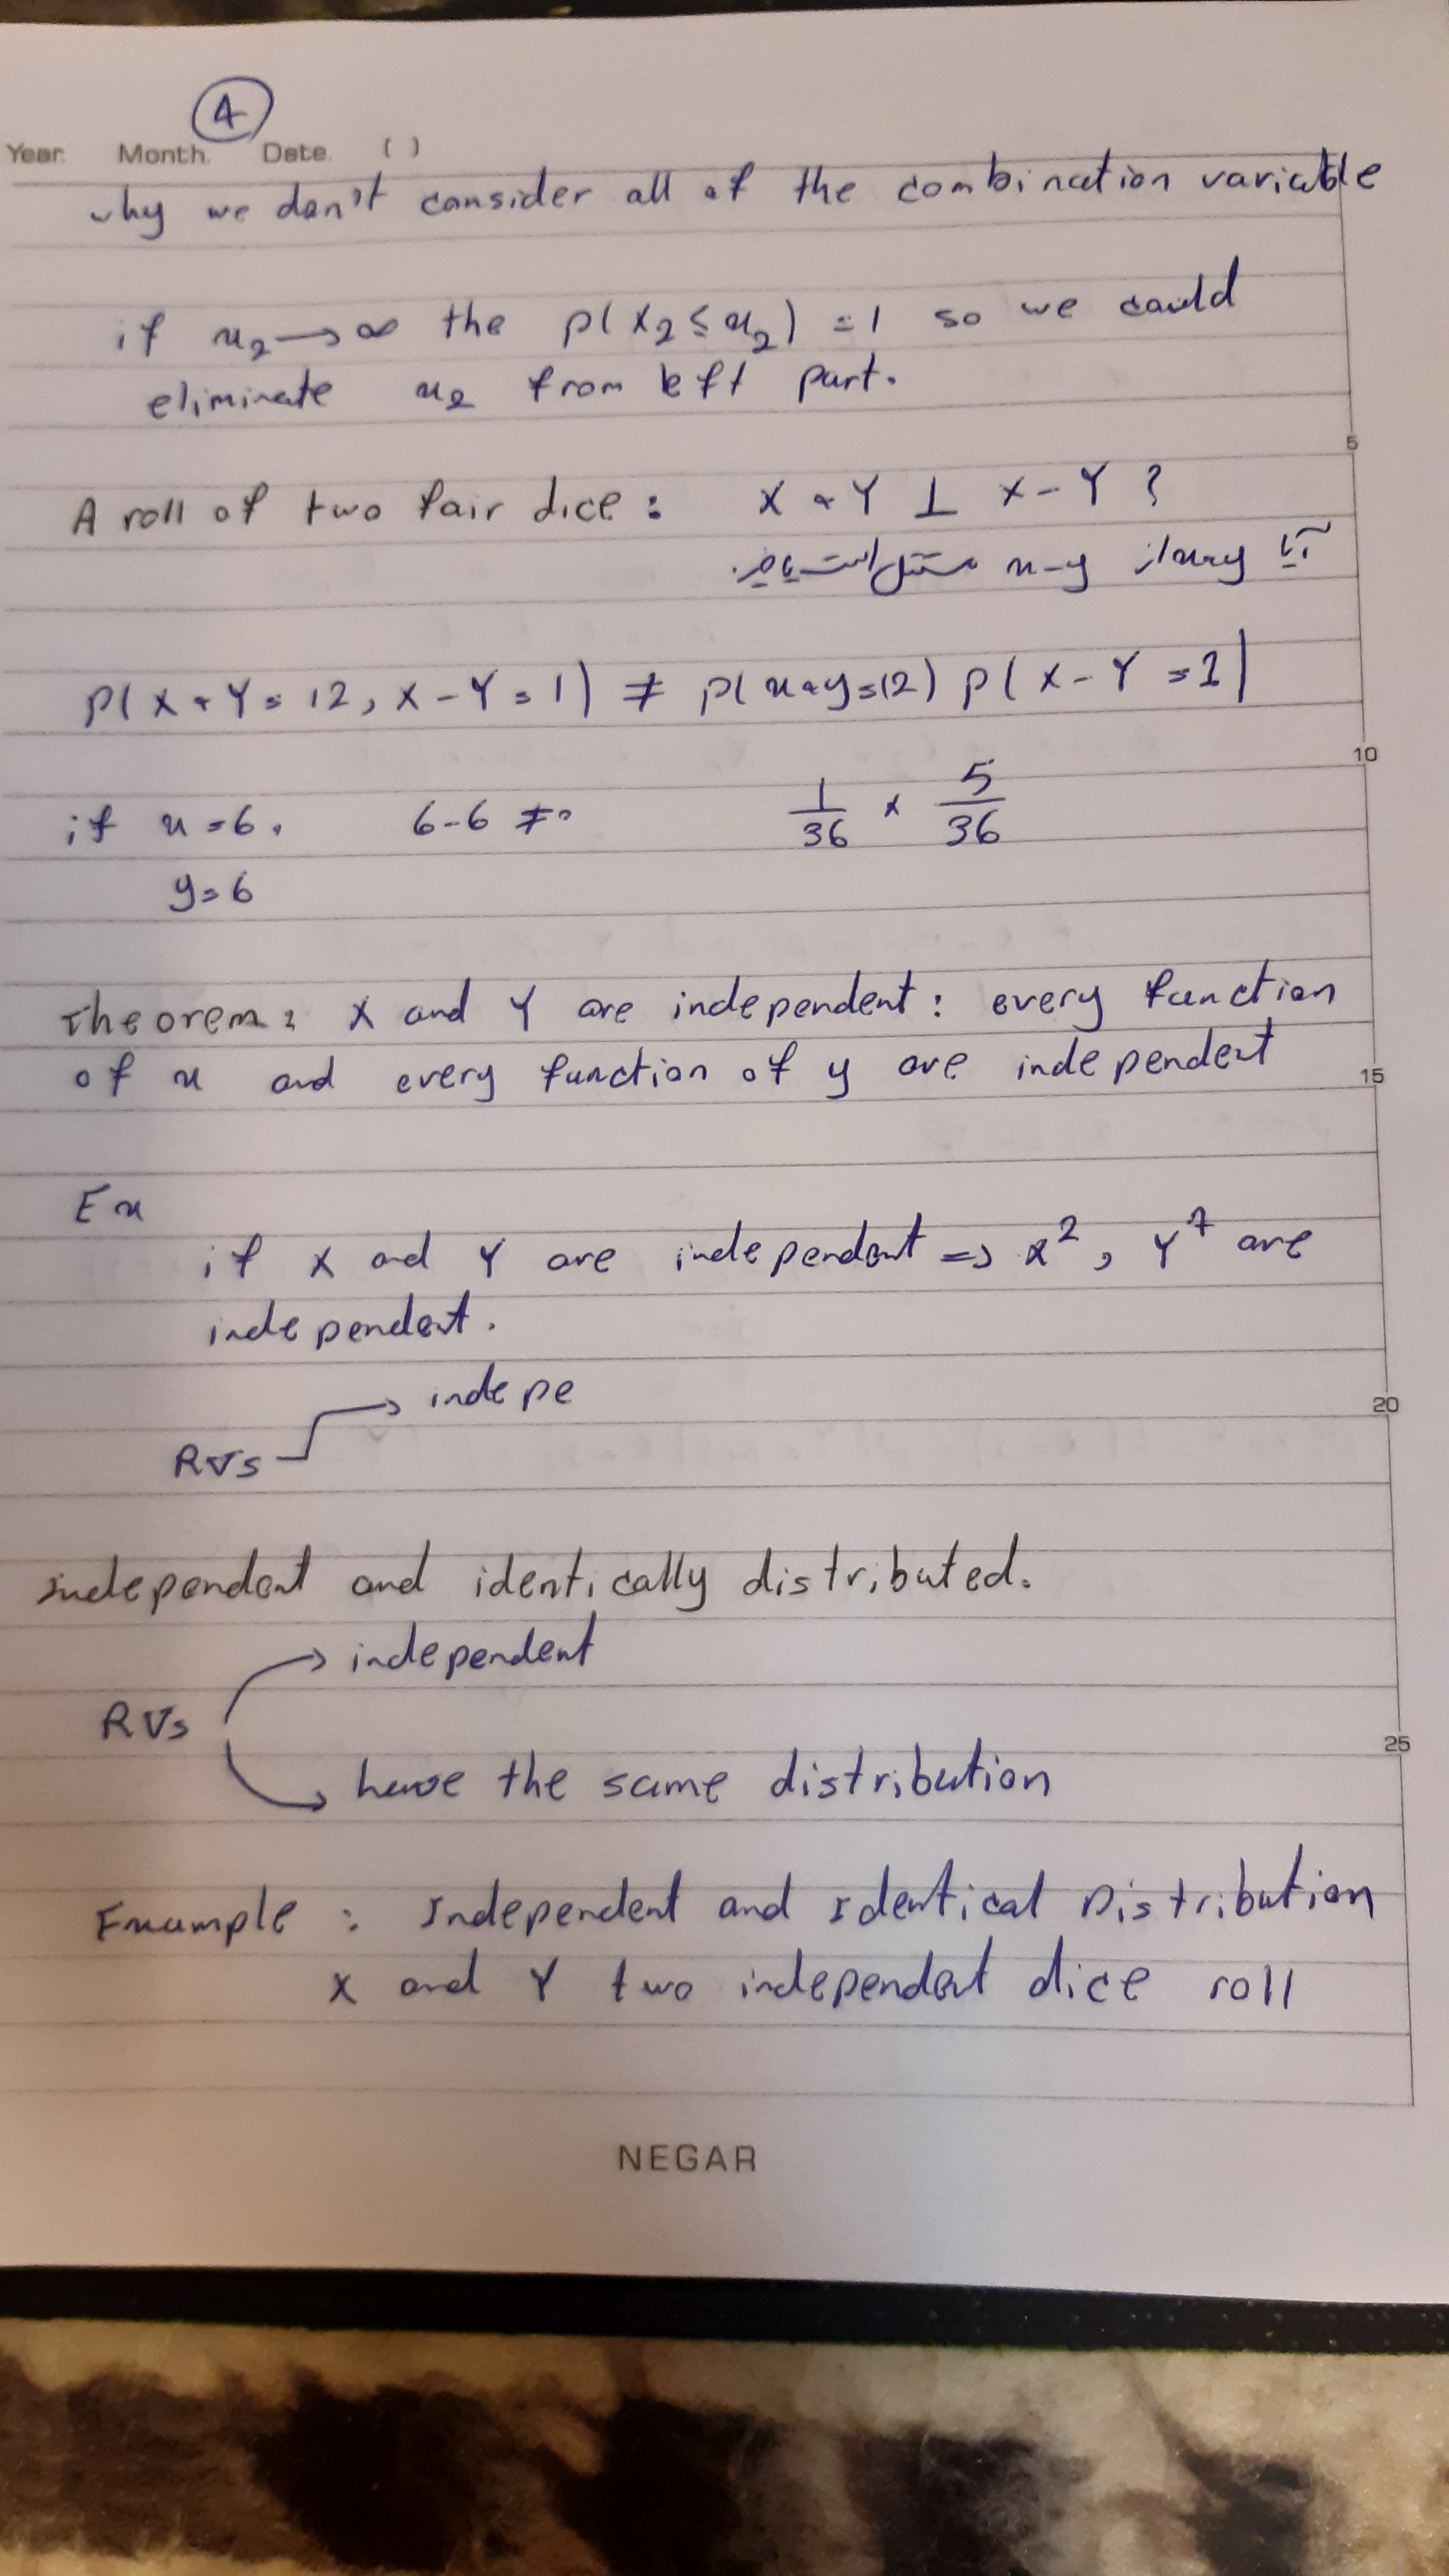 4
Year. Month. Date. ( )
why we don't consider all of the combination variable
if x₂ → ∞ the p(X₂ ≤ x₂) = 1 so we could
eliminate x₂ from left part.
5
A roll of two fair dice : X + Y ⊥ X - Y ?
آیا x+y از x-y مستقل است یا خیر.
P(X + Y = 12, X - Y = 1) ≠ p(x+y=12) p(X - Y = 1)
10
if x = 6, 6-6 ≠ 0 1/36 × 5/36
y=6
Theorem: X and Y are independent : every function
of x and every function of y are independent
15
Ex
if X and Y are independent => X², Y⁷ are
independent.
→ indepe
20
RVs
independent and identically distributed.
→ independent
RVs
25
→ have the same distribution
Example : Independent and Identical Distribution
X and Y two independent dice roll
NEGAR